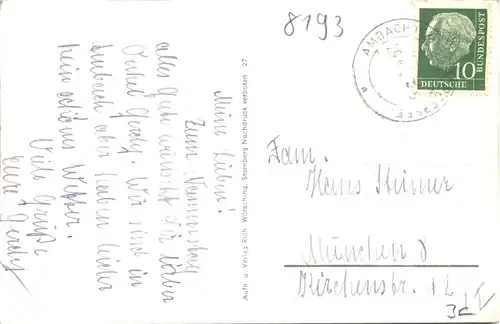 8193
AMBACH
DEUTSCHE
BUNDESPOST
10
Meine Lieben!
Zum Namenstag
alles Gute wünscht Dir lieber
Onkel Gerdy. Wir sind in
Ambach aber haben leider
kein schönes Wetter.
Viele Grüße
eure Gerdy
Aufn. u. Verlag Rich. Wörsching, Starnberg Nachdruck verboten 27
Fam.
Hans Steiner
München 8
Kirchenstr. 12